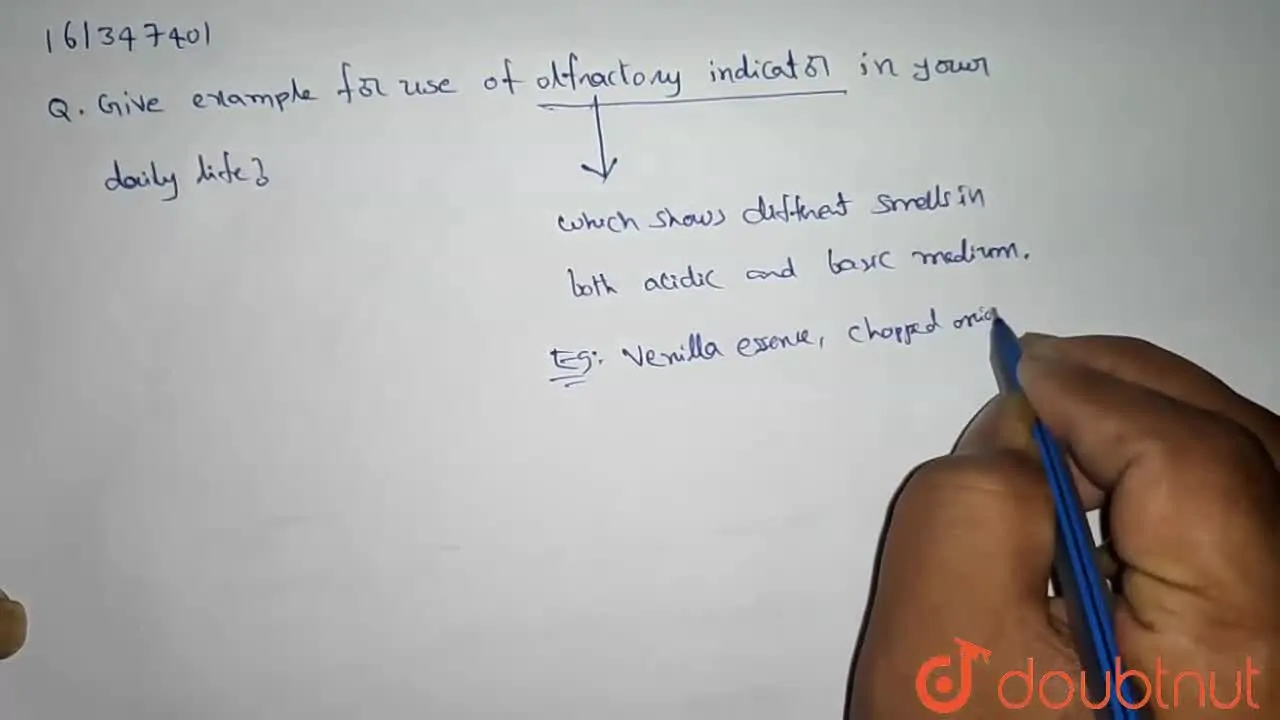 161347401
Q. Give example for use of olfractory indicator in your
daily life?
which shows different smells in
both acidic and basic medium.
Eg: Venilla essense, chopped onio
doubtnut